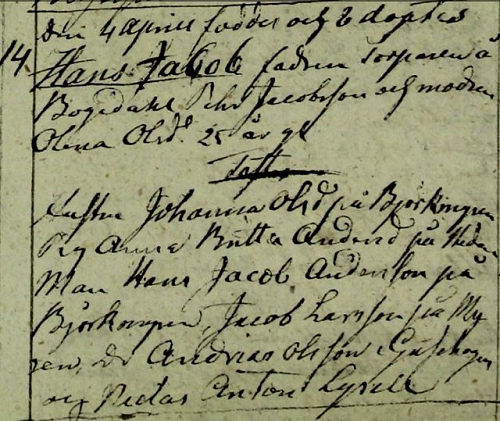 den 4 April föddes och 8 döptes
14. Hans Jacob fadren Torparen å
Bogedahl Pehr Jacobsson och modren
Olena Olsd. 25 år gl
Test
Hustru Johanna Olsd på Björkmyren
Pig Anna Britta Andersd på
Man Hans Jacob Andersson på
Björkomyren, Jacob Larsson på My
ren, Dr Andrias Olsson
och Niclas Anton Lyrell